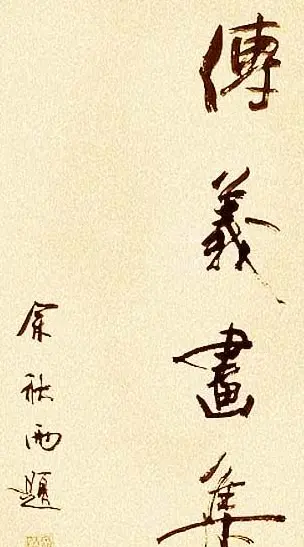 傳義畫集
余秋雨題